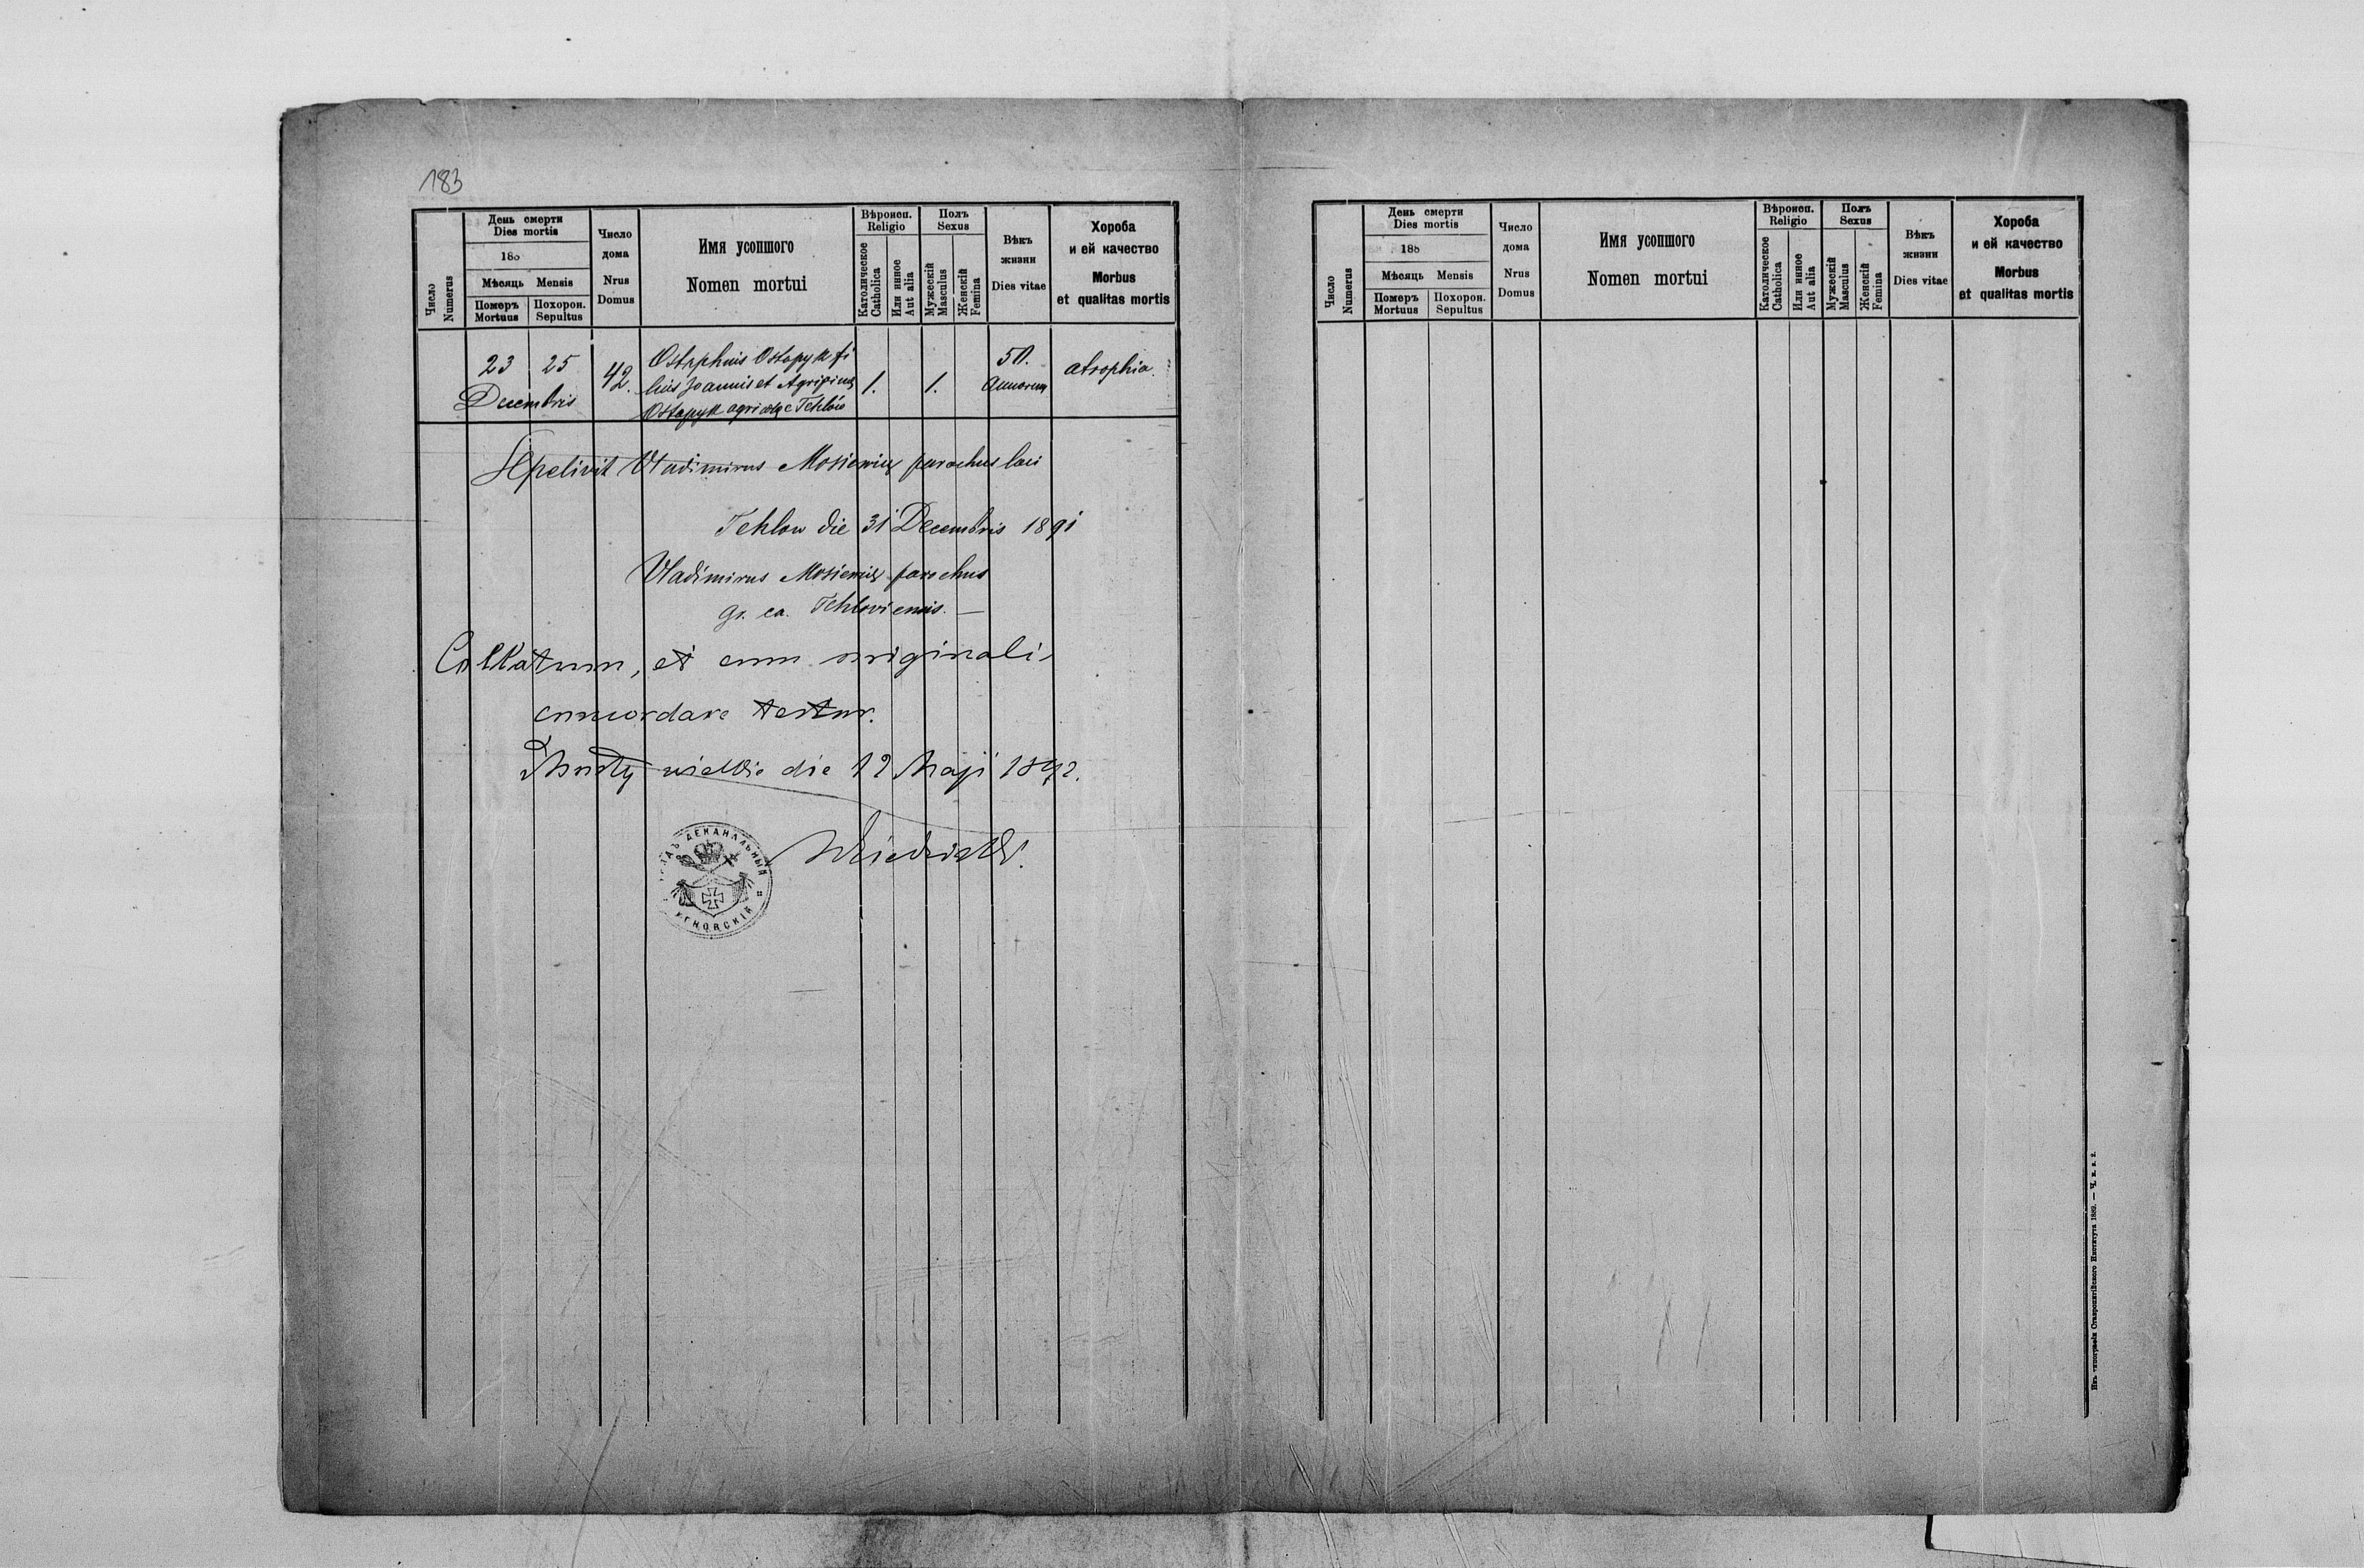 183
Число
Numerus
День смерти
Dies mortis
188
Мѣсяць Mensis
Померъ
Mortuus
Похорон.
Sepultus
Число
дома
Nrus
Domus
Имя усопшого
Nomen mortui
Вѣроисп.
Religio
Католическое
Catholica
Или инное
Aut alia
Полъ
Sexus
Мужескій
Masculus
Женскій
Femina
Вѣкъ
жизни
Dies vitae
Хороба
и ей качество
Morbus
et qualitas mortis
23 25
Decembris
42.
Ostapyk fi
lius Joannis et Agripinae
Ostapyk agricolae Tehlów
1.
1.
50.
annorum
atrophia.
Sepelivit Vladimirus Mosiewicz parochus loci
Tehlow die 31 Decembris 1891
Vladimirus Mosiewicz parochus
gr. ca. Tehloviensis. —
Collatum, et cum originali
concordare testor.
die 12 Maji 1892.
ДЕКАНАЛЬНЫЙ
Число
Numerus
День смерти
Dies mortis
188
Мѣсяць Mensis
Померъ
Mortuus
Похорон.
Sepultus
Число
дома
Nrus
Domus
Имя усопшого
Nomen mortui
Вѣроисп.
Religio
Католическое
Catholica
Или инное
Aut alia
Полъ
Sexus
Мужескій
Masculus
Женскій
Femina
Вѣкъ
жизни
Dies vitae
Хороба
и ей качество
Morbus
et qualitas mortis
Изъ типографіи Ставропигійского Института 1889. — Ч.